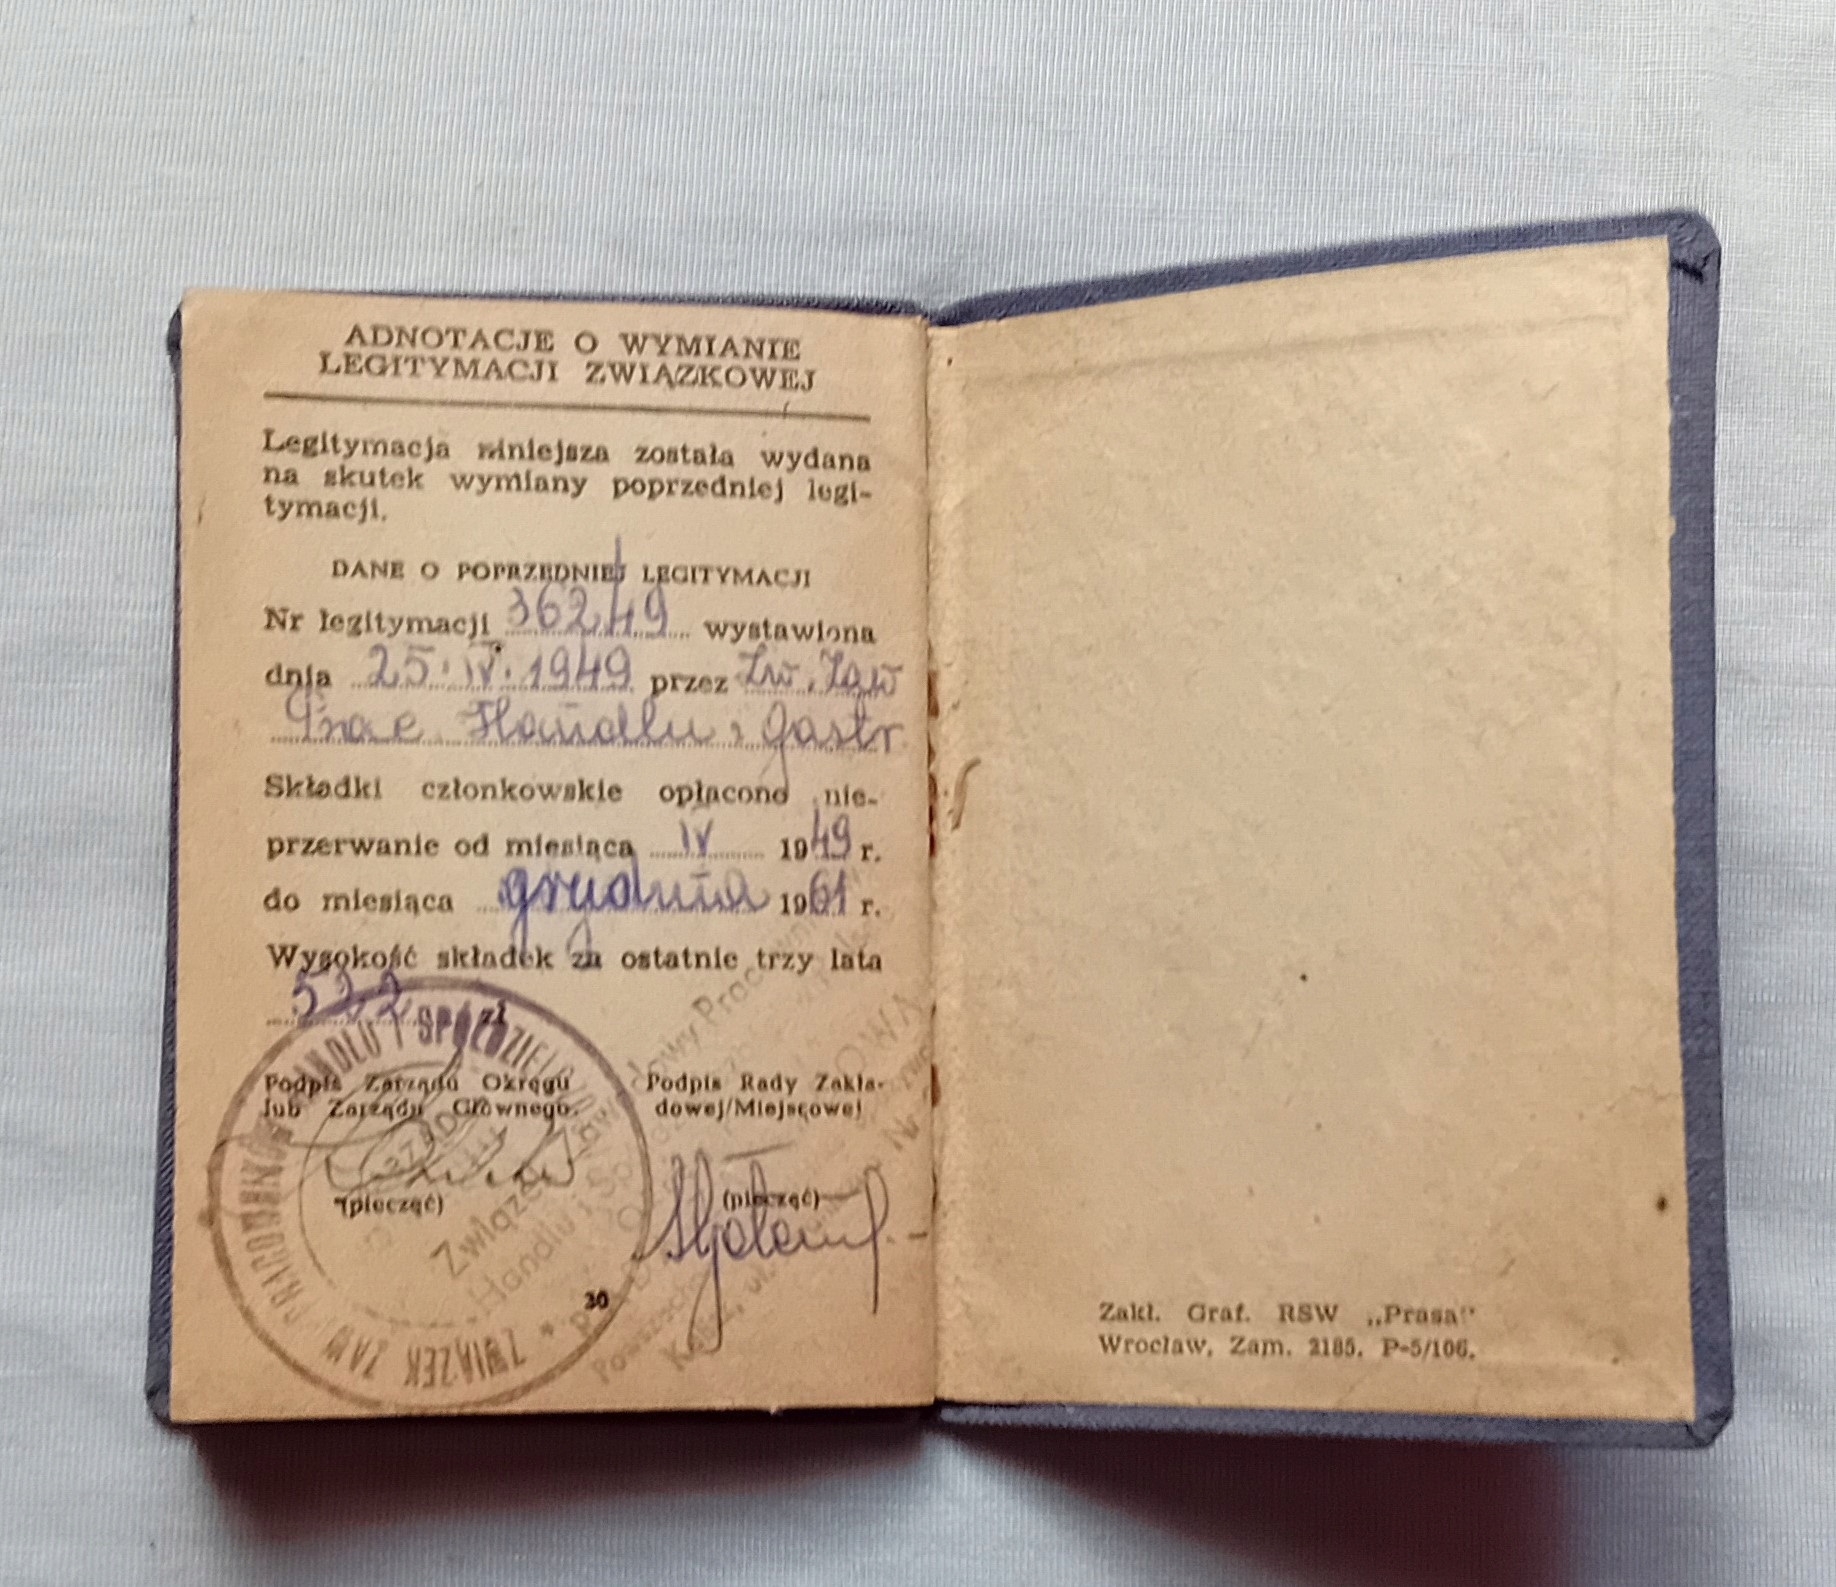 ADNOTACJE O WYMIANIE
LEGITYMACJI ZWIĄZKOWEJ
Legitymacja niniejsza została wydana
na skutek wymiany poprzedniej legi-
tymacji.
DANE O POPRZEDNIEJ LEGITYMACJI
Nr legitymacji 36249 wystawiona
dnia 25.IV.1949 przez Zw. Zaw
Prac Handlu i Gastr
Składki członkowskie opłacono nie-
przerwanie od miesiąca IV 1949 r.
do miesiąca grudnia 1961 r.
Wysokość składek za ostatnie trzy lata
522 zł
Podpis Zarządu Okręgu
lub Zarządu Głównego.
(pieczęć)
Podpis Rady Zakła-
dowej/Miejscowej
(pieczęć)
ZWIĄZEK ZAW PRACOWNIKÓW HANDLU I SPÓŁDZIELCZ
Związek Zawodowy Pracowników
Handlu i Sp
30
Zakł. Graf. RSW „Prasa"
Wrocław, Zam. 2185. P-5/106.